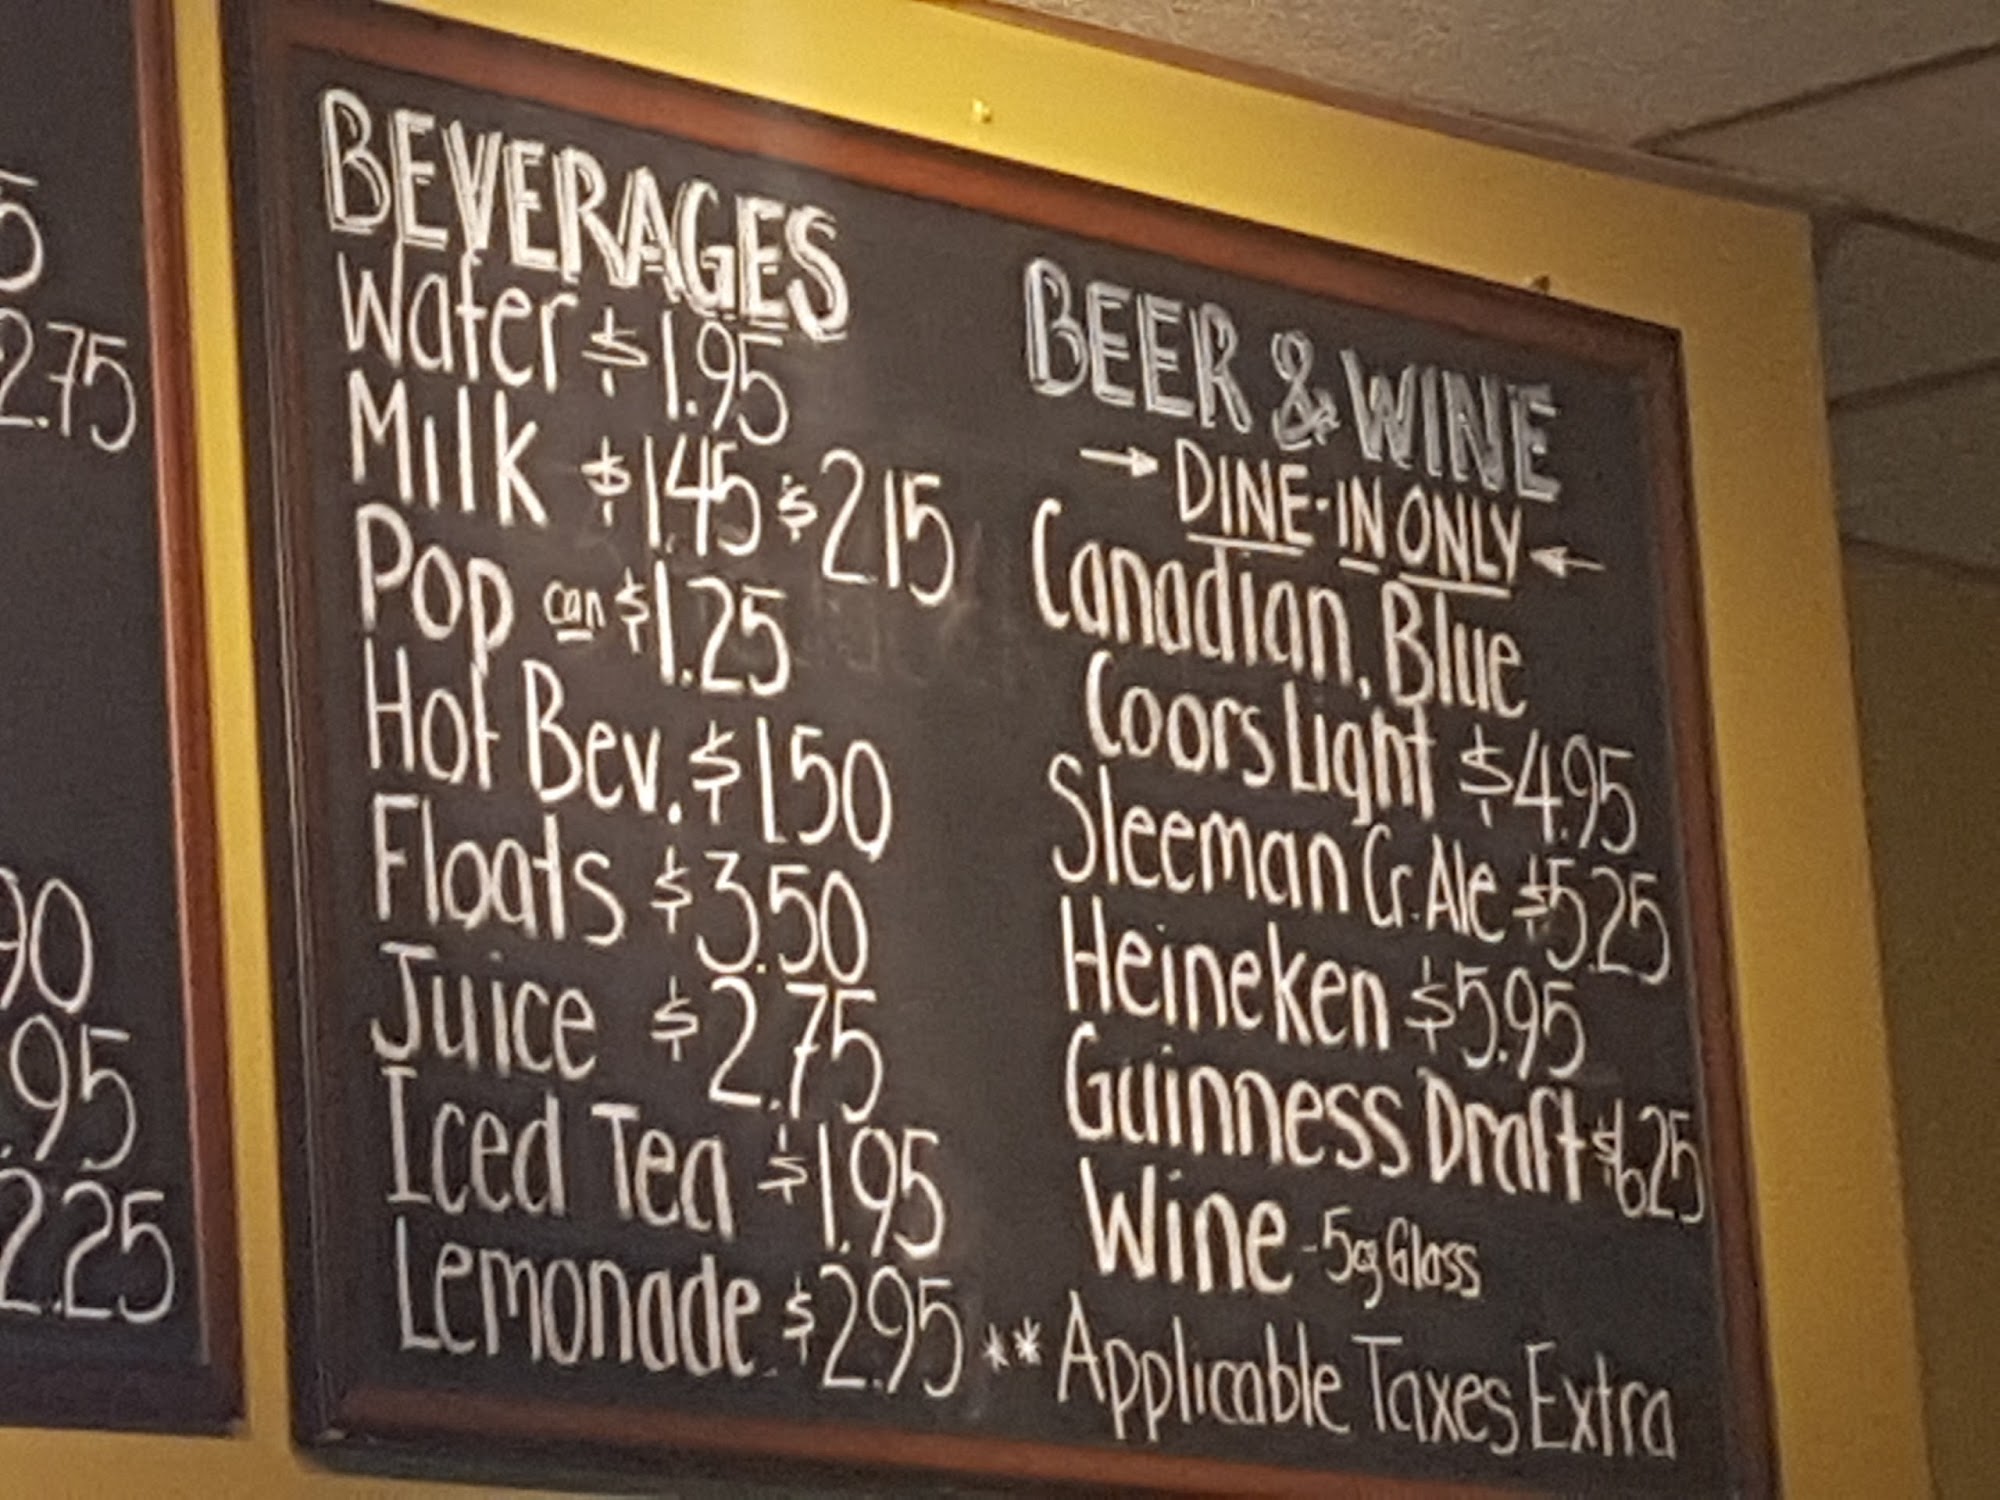 5
2.75
90
.95
2.25
BEVERAGES
Water $1.95
Milk $1.45 $2.15
Pop can $1.25
Hot Bev. $1.50
Floats $3.50
Juice $2.75
Iced Tea $1.95
Lemonade $2.95
BEER & WINE
→ DINE-IN ONLY ←
Canadian, Blue
Coors Light $4.95
Sleeman Cr. Ale $5.25
Heineken $5.95
Guinness Draft $6.25
Wine - 5oz Glass
** Applicable Taxes Extra